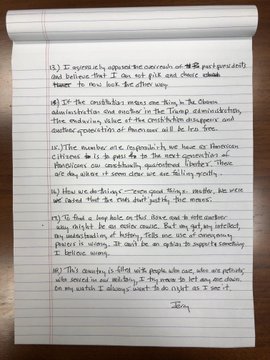 13.) I aggressively opposed the overreach of past presidents
and believe that I can not pick and choose
to now look the other way.
14) If the constitution means one thing in the Obama
administration and another in the Trump administration,
the enduring value of the constitution disappears and
another generation of Americans will be less free.
15.) The number one responsibility we have as American
citizens is to pass to the next generation of
Americans our constitutionally guaranteed liberties. There
are days where it seems clear we are failing greatly.
16) How we do things - even good things - matter. We were
raised that the ends don't justify the means.
17) To find a loop hole on this issue and to vote another
way might be an easier course. But my gut, my intellect,
my understanding of history, tells me use of emergency
powers is wrong. It can't be an option to support something
I believe wrong.
18) This country is filled with people who care, who are patriots,
who served in our military, I try never to let any one down.
On my watch I always want to do right as I see it.
Jerry